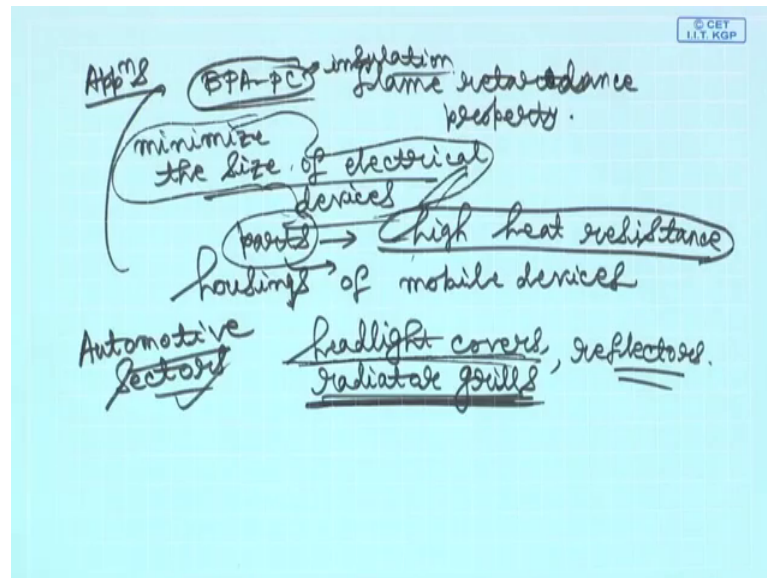 © CET
I.I.T. KGP
Appⁿs BPA-PC insulation
flame retardance
property.
minimize
the size of electrical
devices
parts → high heat resistance
housings of mobile devices
Automotive headlight covers, reflectors.
Sectors radiatar grills